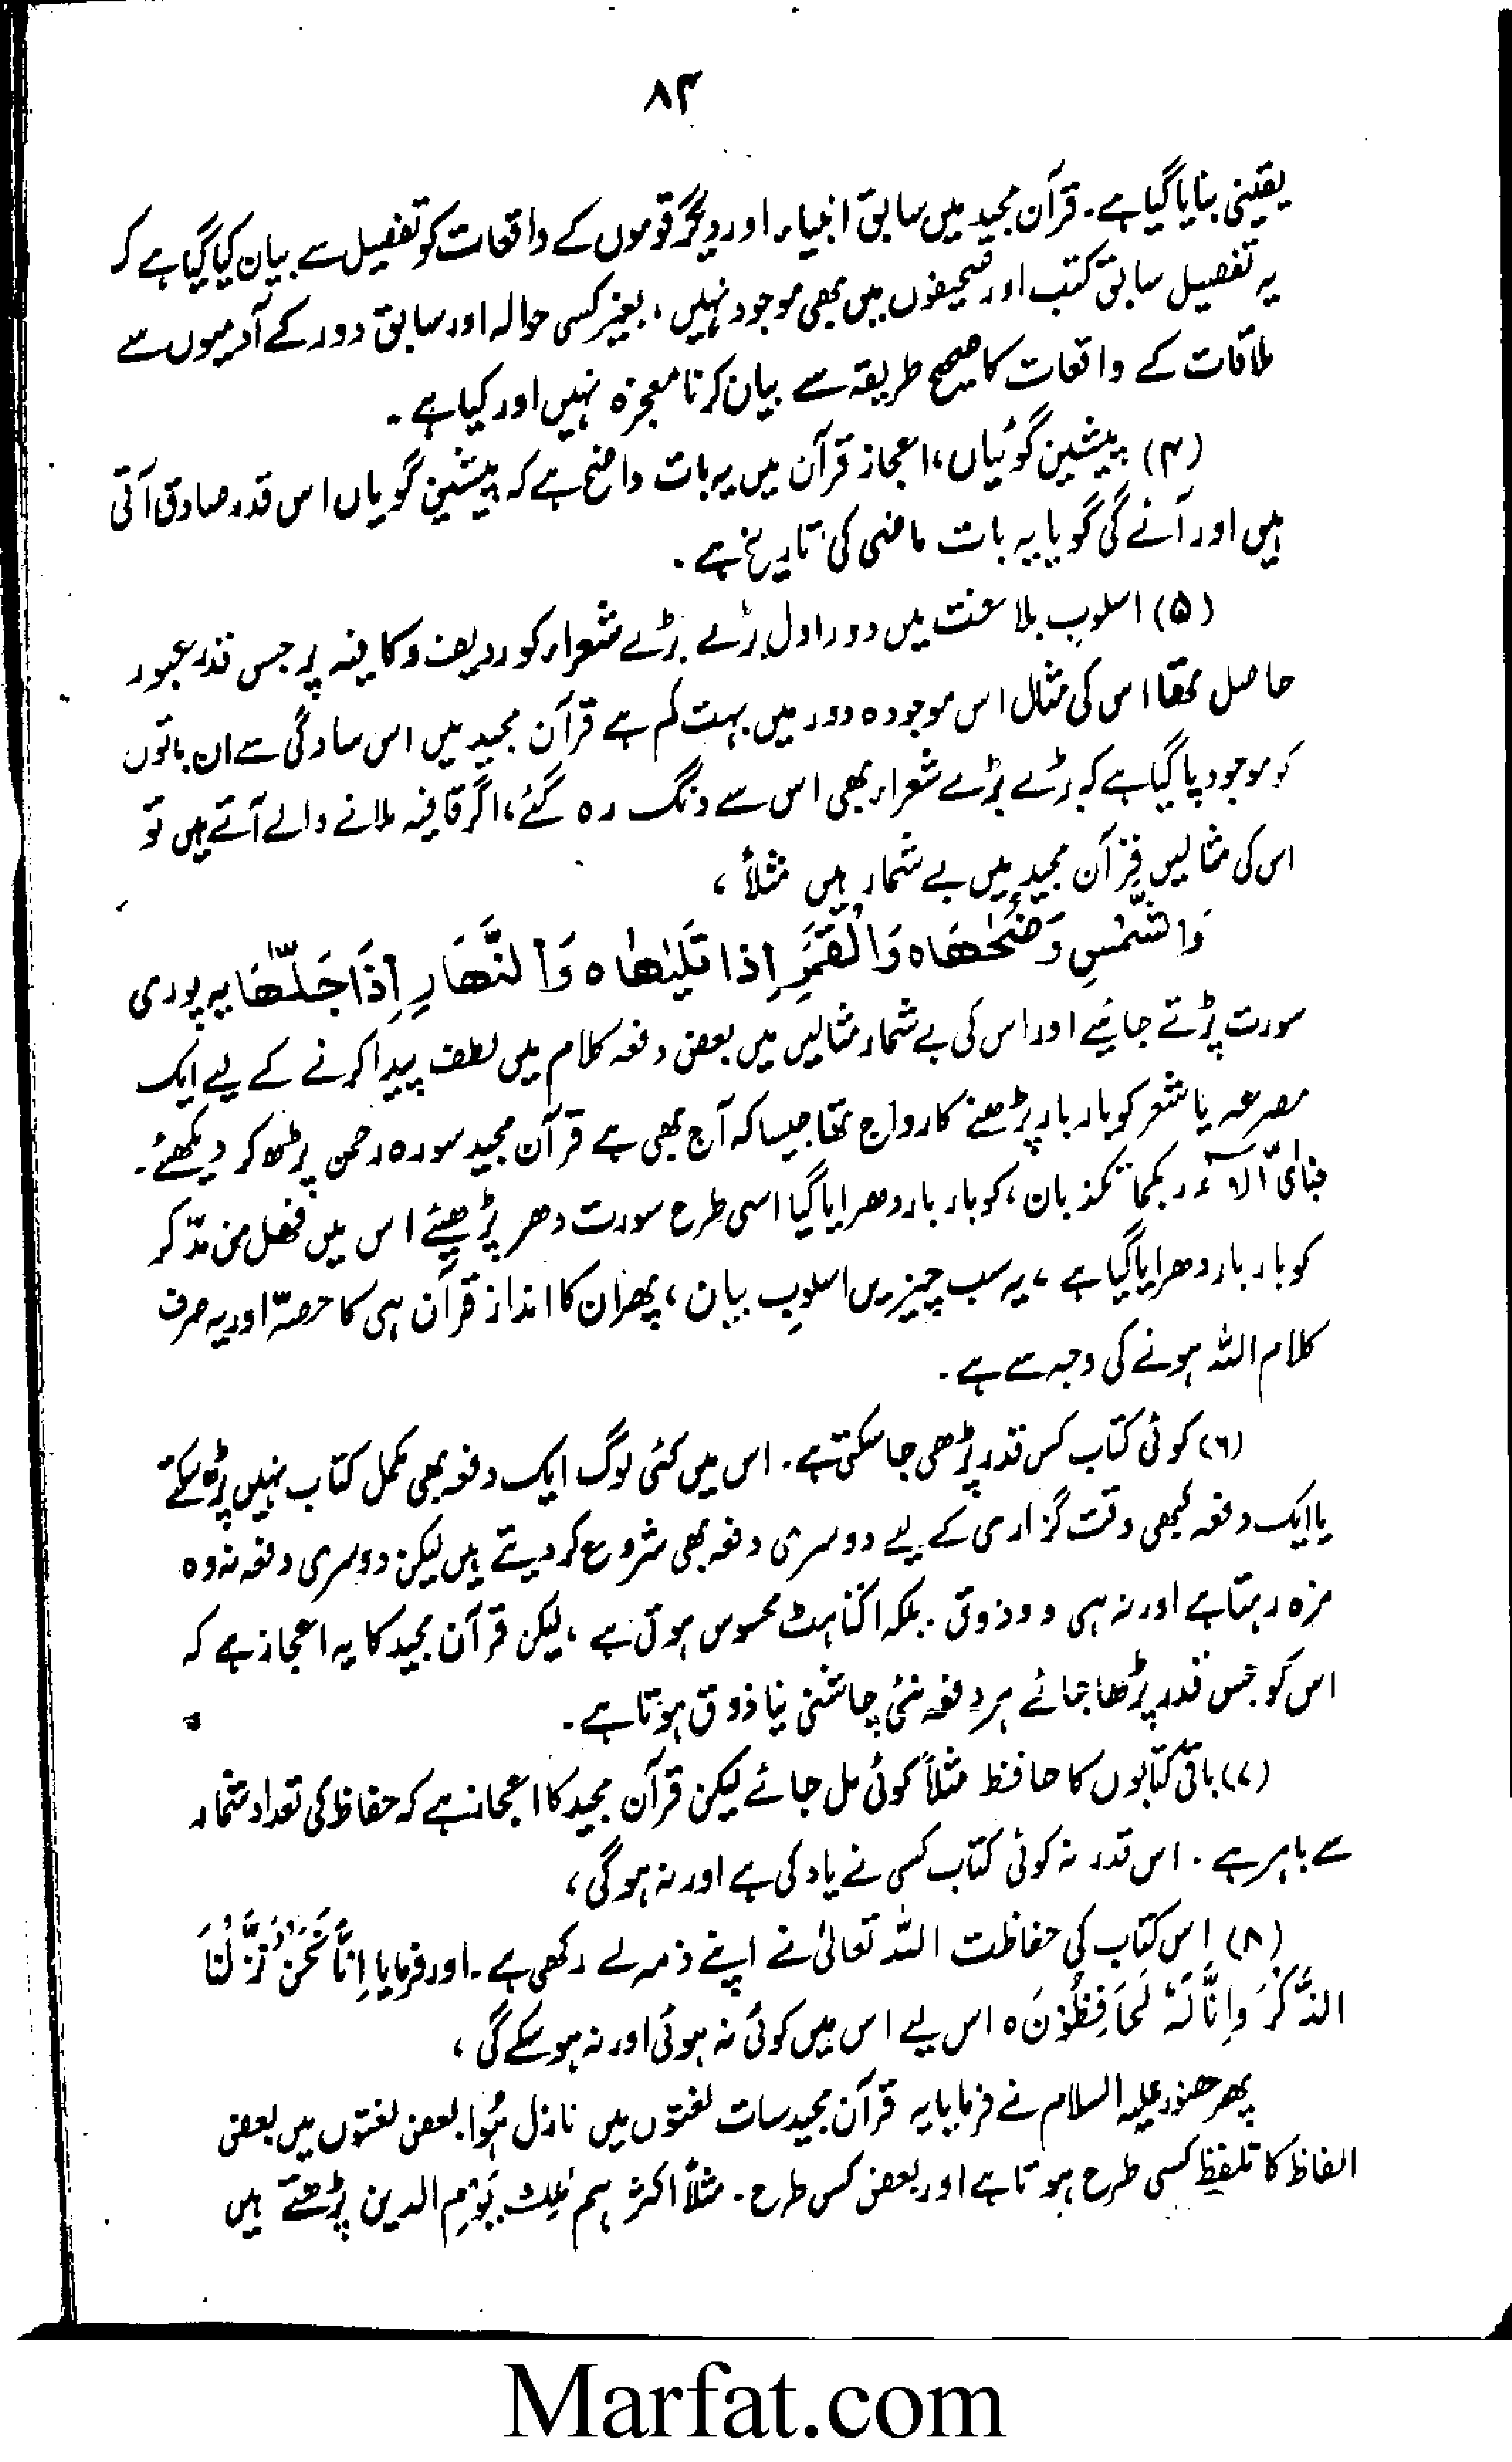 ۸۴
یقینی بنایا گیا ہے۔ قرآن مجید میں سابق انبیاء اور دیگر قوموں کے واقعات کو تفصیل سے بیان کیا گیا ہے کہ
یہ تفصیل سابق کتب اور صحیفوں میں بھی موجود نہیں، بغیر کسی حوالہ اور سابق دور کے آدمیوں سے
ملاقات کے واقعات کا صحیح طریقہ سے بیان کرنا معجزہ نہیں اور کیا ہے۔
(۴) پیشین گوئیاں، اعجاز قرآن میں یہ بات واضح ہے کہ پیشین گویاں اس قدر صادق آتی
ہیں اور آنے گی گویا یہ بات ماضی کی تاریخ ہے۔
(۵) اسلوب بلاغت میں دور اول بڑے بڑے شعراء کو ردیف و کافیہ پر جس قدر عبور
حاصل تھا اس کی مثال اس موجودہ دور میں بہت کم ہے قرآن مجید میں اس سادگی سے ان باتوں
کو موجود پا گیا ہے کہ بڑے بڑے شعراء بھی اس سے دنگ رہ گئے، اگر قافیہ ملانے والے آتے ہیں تو
اس کی مثالیں قرآن مجید میں بے شمار ہیں مثلاً،
وَالشَّمْسِ وَضُحٰھَا ہ وَالْقَمَرِ اِذا تَلٰىھَا ہ وَالنَّھَارِ اِذَا جَلّٰھَا یہ پوری
سورت پڑتے جائیے اور اس کی بے شمار مثالیں ہیں بعض دفعہ کلام میں لطف پیدا کرنے کے لیے ایک
مصرعہ یا شعر کو بار بار پڑھنے کا رواج تھا جیسا کہ آج بھی ہے قرآن مجید سورہ رحمن پڑھ کر دیکھئے۔
فبائ آلاء ربکما تکذبان، کو بار بار دھرایا گیا اسی طرح سورت دھر پڑھیئے اس میں فھل من مدّکر
کو بار بار دھرایا گیا ہے، یہ سب چیزیں اسلوبِ بیان، پھر ان کا انداز قرآن ہی کا حصّہ اور یہ صرف
کلام اللہ ہونے کی وجہ سے ہے۔
(٦) کوئی کتاب کس قدر پڑھی جا سکتی ہے۔ اس میں کئی لوگ ایک دفعہ بھی مکمل کتاب نہیں پڑھ سکتے
یا ایک دفعہ کبھی وقت گزاری کے لیے دوسری دفعہ بھی شروع کر دیتے ہیں لیکن دوسری دفعہ نہ وہ
مزہ رہتا ہے اور نہ ہی وہ ذوق۔ بلکہ اکتاہٹ محسوس ہوتی ہے، لیکن قرآن مجید کا یہ اعجاز ہے کہ
اس کو جس قدر پڑھا جائے ہر دفعہ نئی چاشنی نیا ذوق ہوتا ہے۔
(۷) باقی کتابوں کا حافظ مثلاً کوئی مل جائے لیکن قرآن مجید کا اعجاز ہے کہ حفاظ کی تعداد شمار
سے باہر ہے۔ اس قدر نہ کوئی کتاب کسی نے یاد کی ہے اور نہ ہو گی،
(۸) اس کتاب کی حفاظت اللہ تعالیٰ نے اپنے ذمہ لے رکھی ہے۔ اور فرمایا اِنَّا نَحْنُ نَزَّلْنَا
الذِّكْرَ وَاِنَّا لَهٗ لَحَافِظُوْنَ ہ اس لیے اس میں کوئی نہ ہوئی اور نہ ہو سکے گی،
پھر حضور علیہ السلام نے فرمایا یہ قرآن مجید سات لغتوں میں نازل ہُوا بعض لغتوں میں بعض
الفاظ کا تلفظ کسی طرح ہوتا ہے اور بعض کس طرح۔ مثلاً اکثر ہم مٰلِك یَوْمِ الدین پڑھتے ہیں
Marfat.com